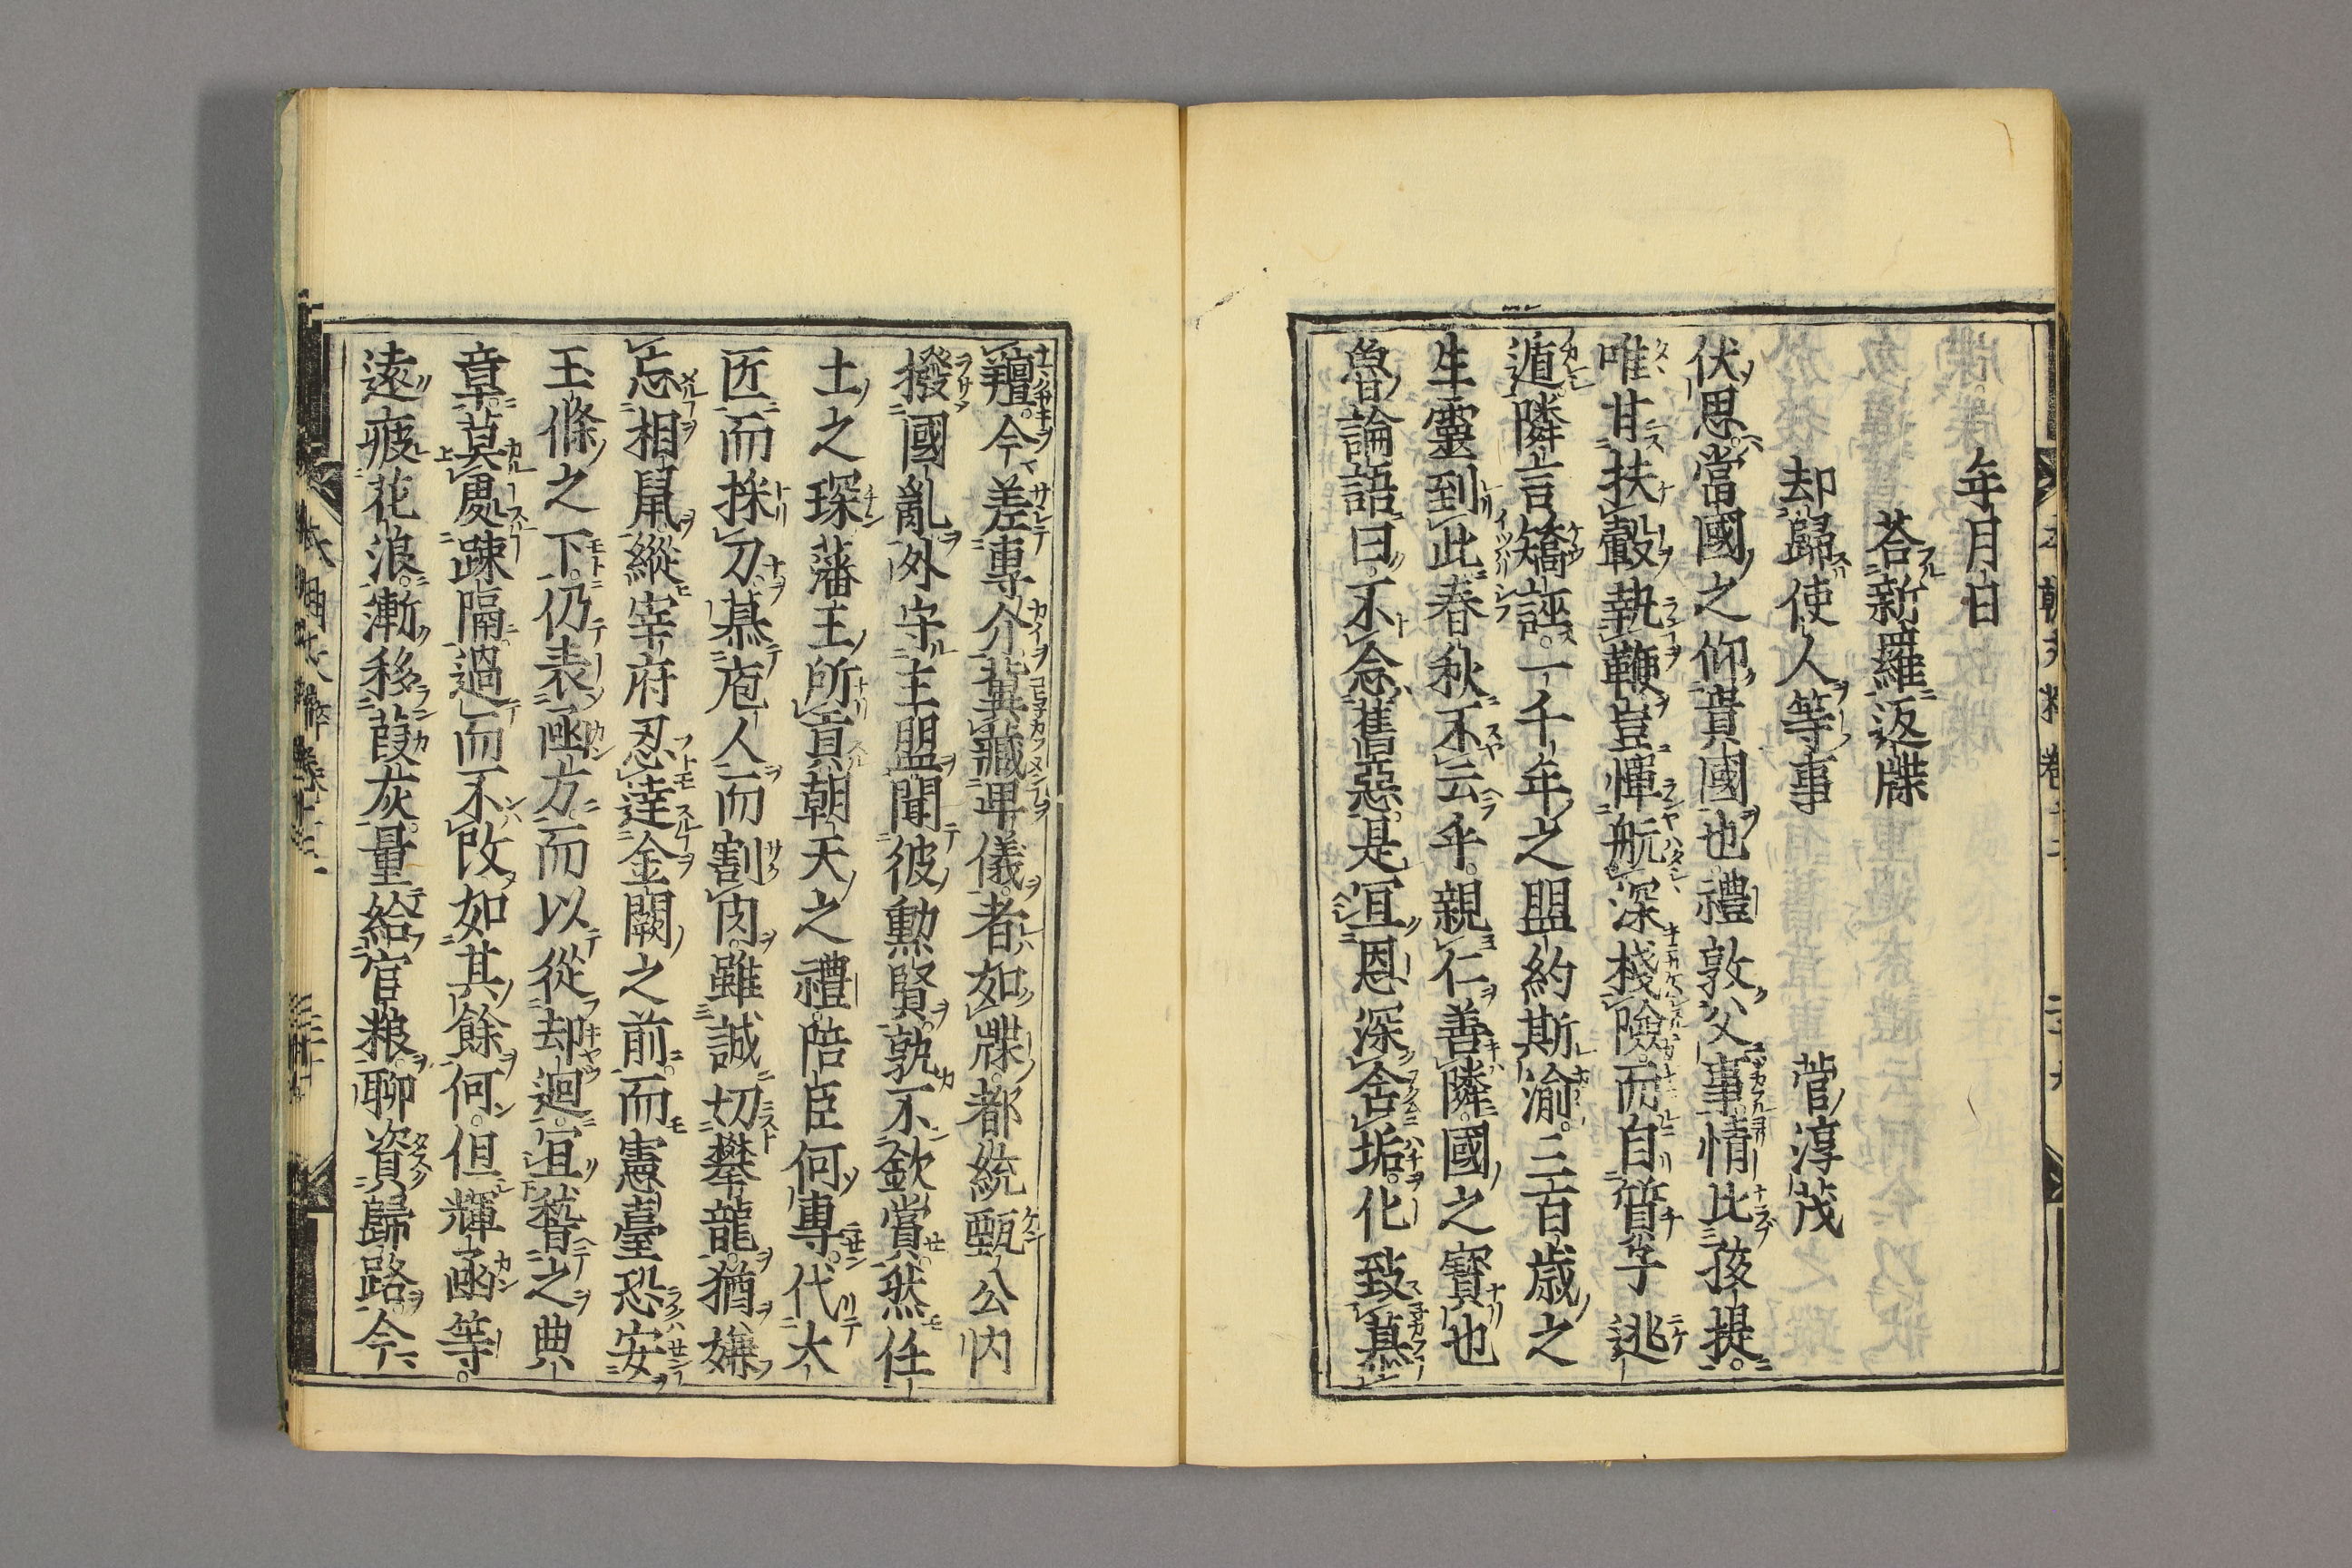 年月日
荅新羅返牒
却歸使人等事　菅淳茂
伏思當國之仰貴國也禮敦父事情比孩提
唯甘扶轂執鞭豈憚航深棧險而自質子逃
遁隣言矯誣一千年之盟約斯渝三百歳之
生靈到此春秋不云乎親仁善隣國之寶也
魯論語曰不念舊惡是冝恩深舍垢化致慕
羶今差專介冀藏卑儀者如牒都統甄公内
撥國亂外守主盟聞彼勲賢孰不欽賞然任
土之琛藩王所貢朝天之禮陪臣何專代大
匠而採刀慕庖人而割肉雖誠切攀龍猶嫌
忘相鼠縱宰府忍達金闕之前而憲臺恐安
玉條之下仍表凾方而以從却迴冝䝨之典
章莫處踈隔過而不改如其餘何但輝嵓等
遠疲花浪漸移葭灰量給官粮聊資歸路今